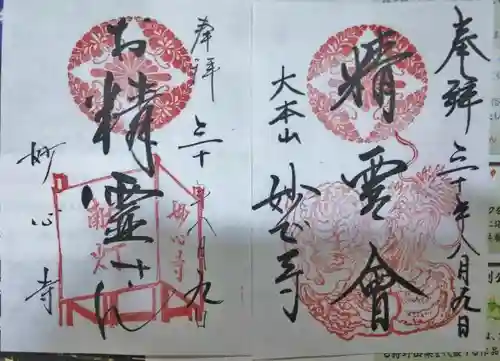 奉拝
三十年八月九日
精霊会
大本山
妙心寺
奉拝
三十年八月九日
お精霊さん
献灯
妙心寺
妙心寺